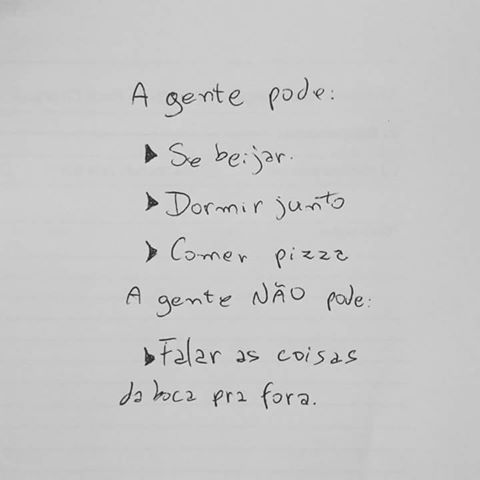 A gente pode:
Se beijar.
Dormir junto
Comer pizza
A gente NÃO pode:
Falar as coisas
da boca pra fora.